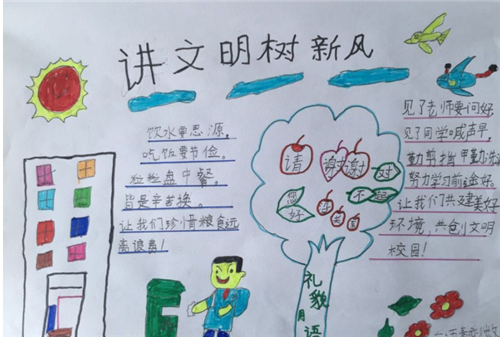 讲文明树新风
饮水要思源,
吃饭要节俭,
粒粒盘中餐,
皆是辛苦换。
让我们珍惜粮食远
离浪费!
请
谢谢
对
不起
您好
礼貌用语
见了老师要问好
见了同学喊声早,
勤剪指甲勤洗
努力学习前途好。
让我们共建美好
环境,共创文明
校园!